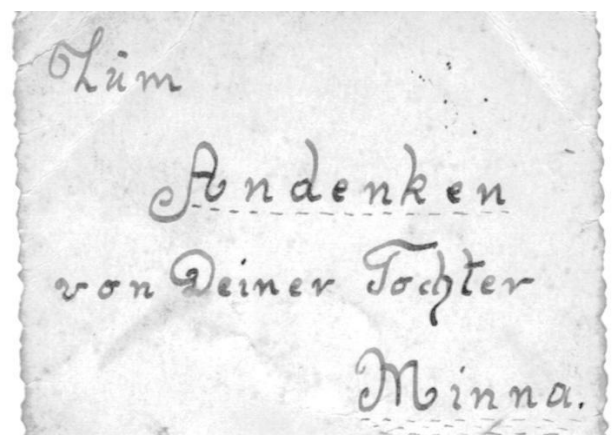 Zum
Andenken
von Deiner Tochter
Minna.